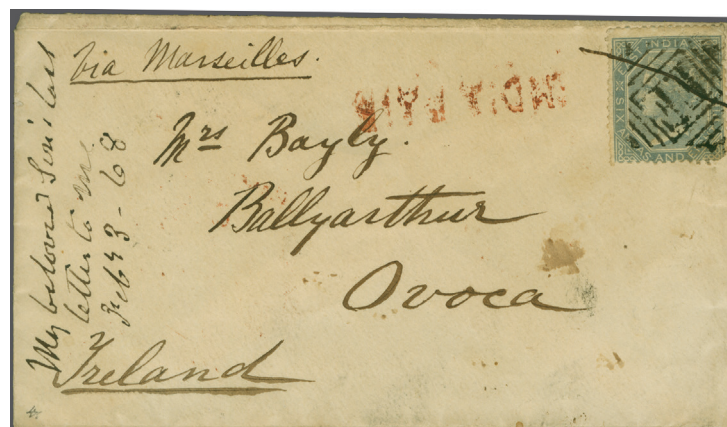 Via Marseilles.
INDIA PAID
INDIA
SIX ANNAS
Mrs Bayly.
Ballyarthur
Ovoca
Ireland
My beloved Son's last
letter to me
Feb 3 - 68